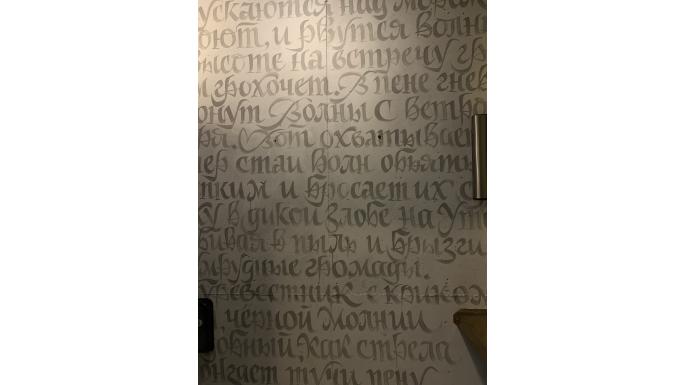 ускаются над морем
оют, и рвутся волны
высоте на встречу гр
м грохочет. В пене гнев
онут Волны с ветро
ря. Вот охватывает
тер стаи волн объять
пким и бросает их с
ху в дикой злобе на уте
бивая в пыль и брызги
умрудные громады.
уревестник с криком
, черной молнии
обный, как стрела
онзает тучи, пену